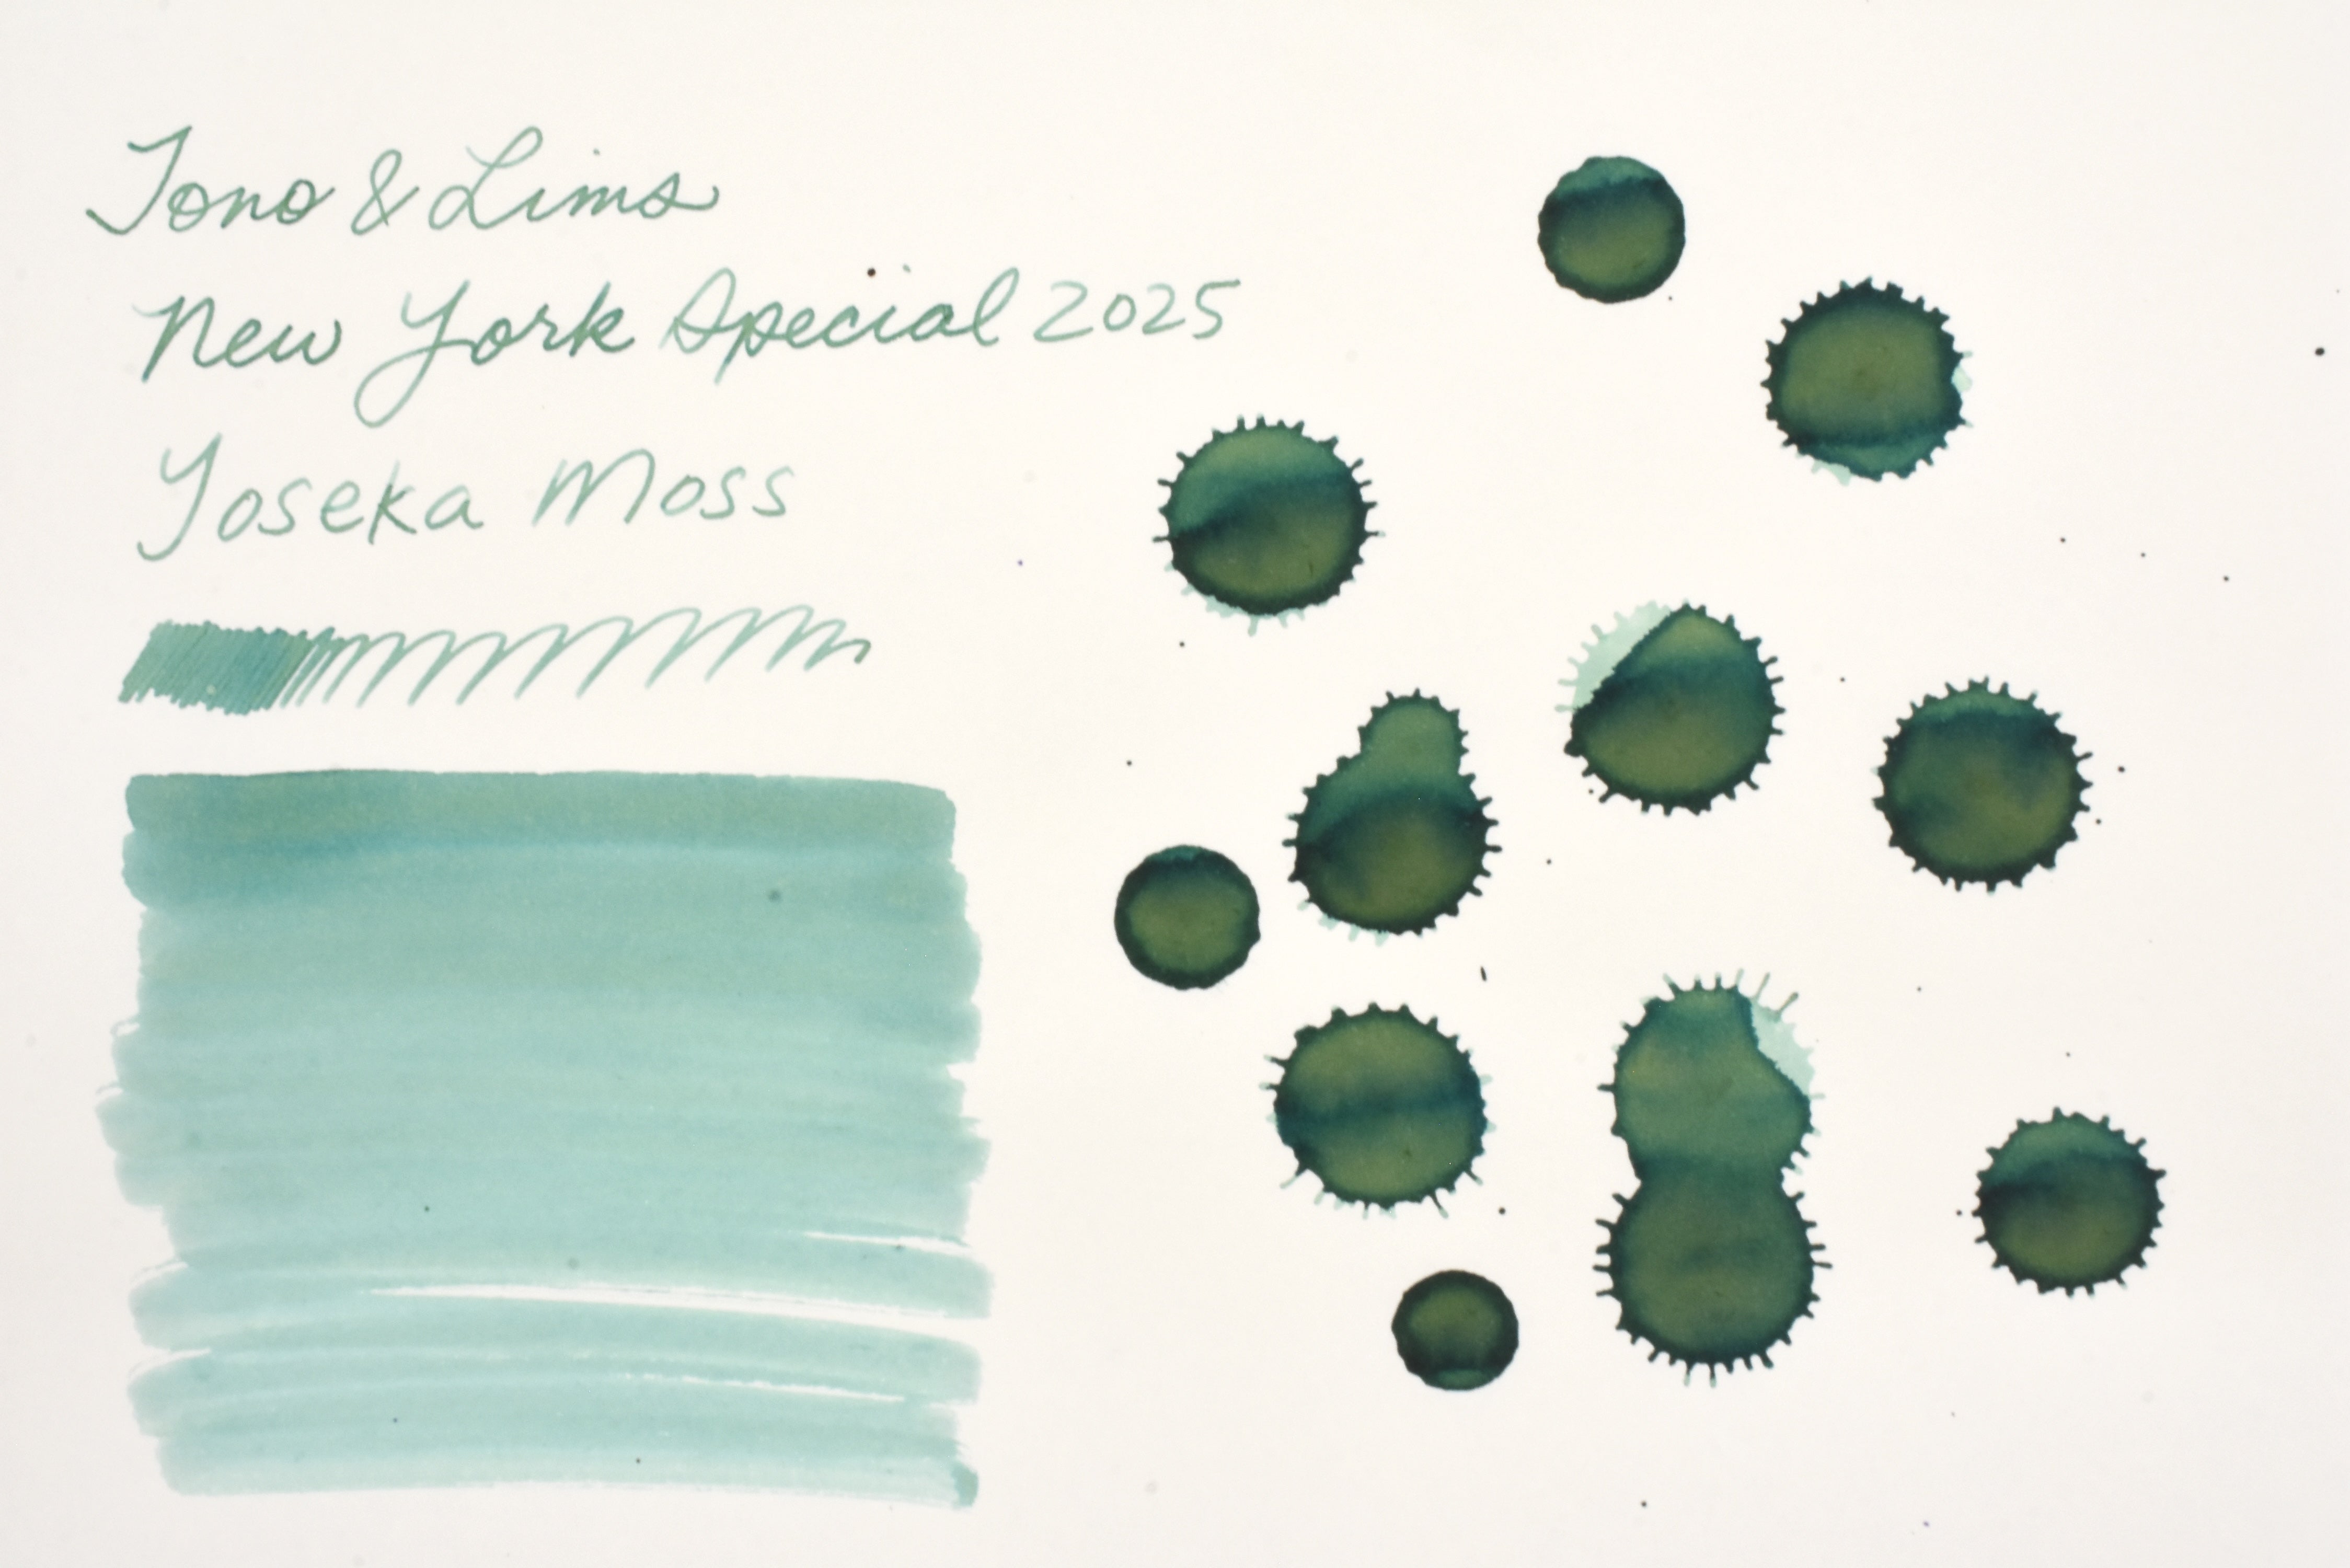 Tono & Lims
New York Special 2025
Yoseka Moss